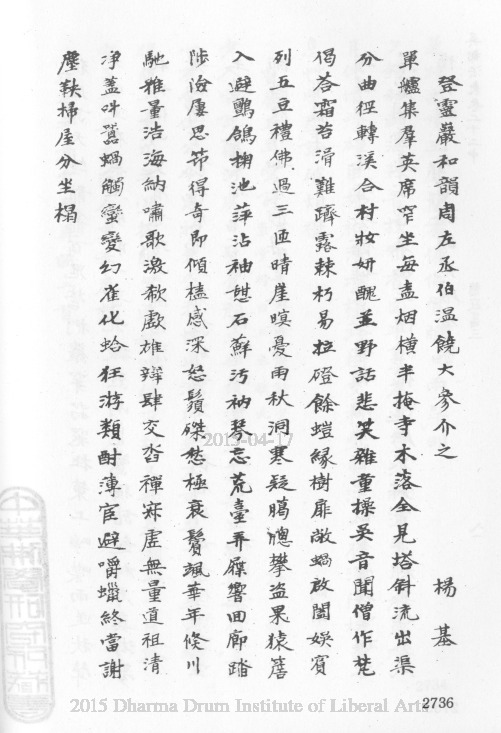 登靈巖和韻周左丞伯温饒大參介之　楊基
單艫集羣英席窄坐每盍烟橫半掩寺木落全見塔斜流出渠
分曲徑轉溪合村妝妍醜並野話悲笑雜童操吳音聞僧作梵
偈荅霜苔滑難躋露棘朽易拉磴餘螘緣樹扉敞蝸啟闔娛賓
列五豆禮佛過三匝晴崖暝憂雨秋洞寒疑臈憁攀盜果猿簷
入避鸇鴿掬池萍沾袖憇石蘚汚衲琴忘荒臺弄屧響回廊踏
陟洽屢思筇得奇即傾榼感深怒鬚磔愁極衰鬢颯華年倐川
馳雅量浩海納嘯歌激欷歔雄辯肆交沓禪寂虛無量道祖清
淨盖吁蠶蝸觸蠻變幻雀化蛤狂游類酎薄宦避嚼蠟終當謝
塵鞅掃屋分坐榻
2013-04-17
2736
2015 Dharma Drum Institute of Liberal Arts